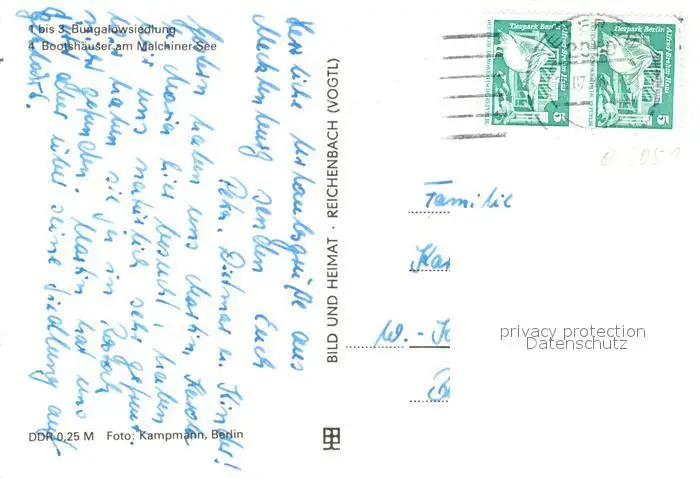 1 bis 3 Bungalowsiedlung
4 Bootshäuser am Malchiner See
Herzliche Urlaubsgrüße aus
Mecklenburg senden Euch
Petra, Dietmar u. Kinder!
Gestern haben uns Martin, Karola
u. Maria hier besucht, haben
wir uns natürlich sehr gefreut
haben sie ja in Rostock
nicht gefunden. Martin hat uns
aber über seine Siedlung auf
DDR 0,25 M Foto: Kampmann, Berlin
BILD UND HEIMAT · REICHENBACH (VOGTL)
Tierpark Berlin
Alfred-Brehm-Haus
5
Tierpark Berlin
Alfred-Brehm-Haus
5
Familie
Ka
W.-
privacy protection
Datenschutz